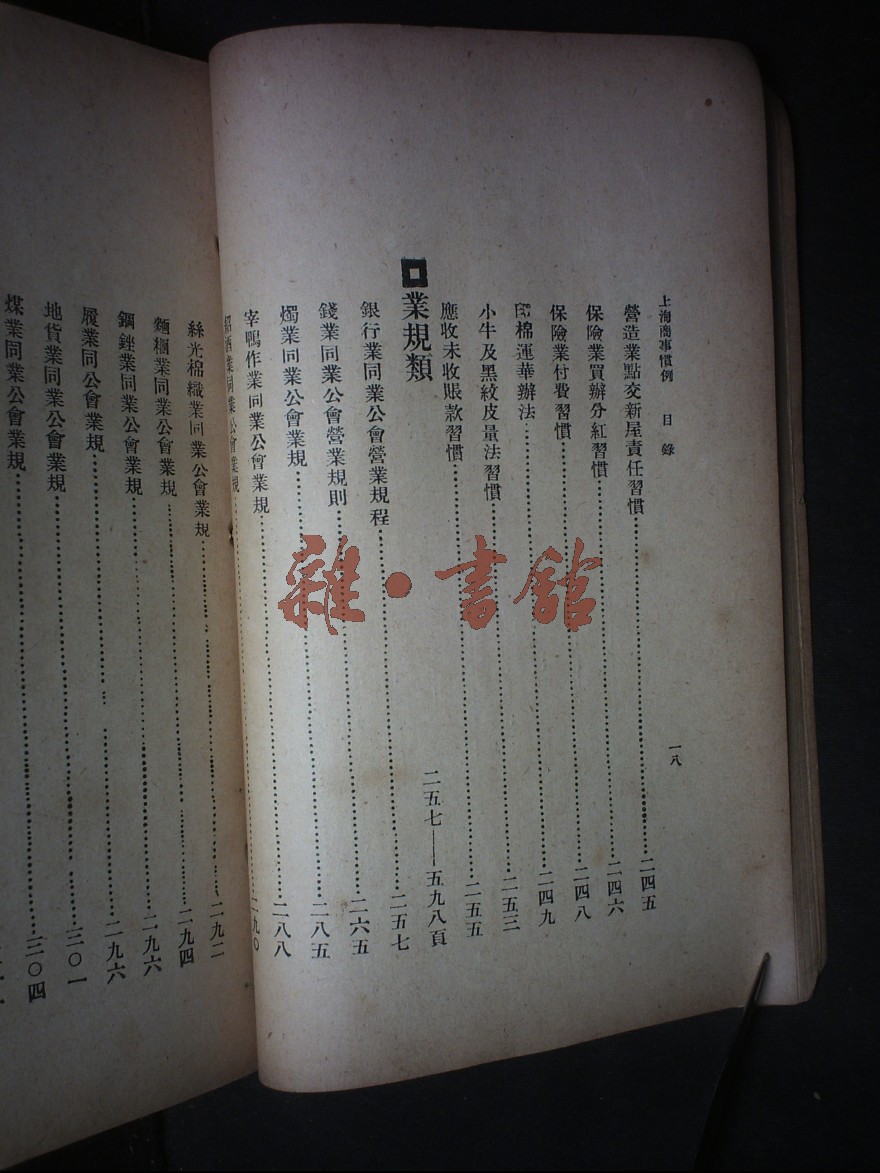 上海商事慣例 目錄 一八
營造業點交新屋責任習慣……二四五
保險業買辦分紅習慣……二四六
保險業付費習慣……二四八
印棉運華辦法……二四九
小牛及黑紋皮量法習慣……二五三
應收未收賬款習慣……二五五
業規類 二五七——五九八頁
銀行業同業公會營業規程……二五七
錢業同業公會營業規則……二六五
燭業同業公會業規……二八五
宰鴨作業同業公會業規……二八八
紹酒業同業公會業規……二九〇
絲光棉織業同業公會業規……二九二
麵糰業同業公會業規……二九四
鋼銼業同業公會業規……二九六
履業同業公會業規……二九六
地貨業同業公會業規……三〇一
煤業同業公會業規……三〇四
雜·書館